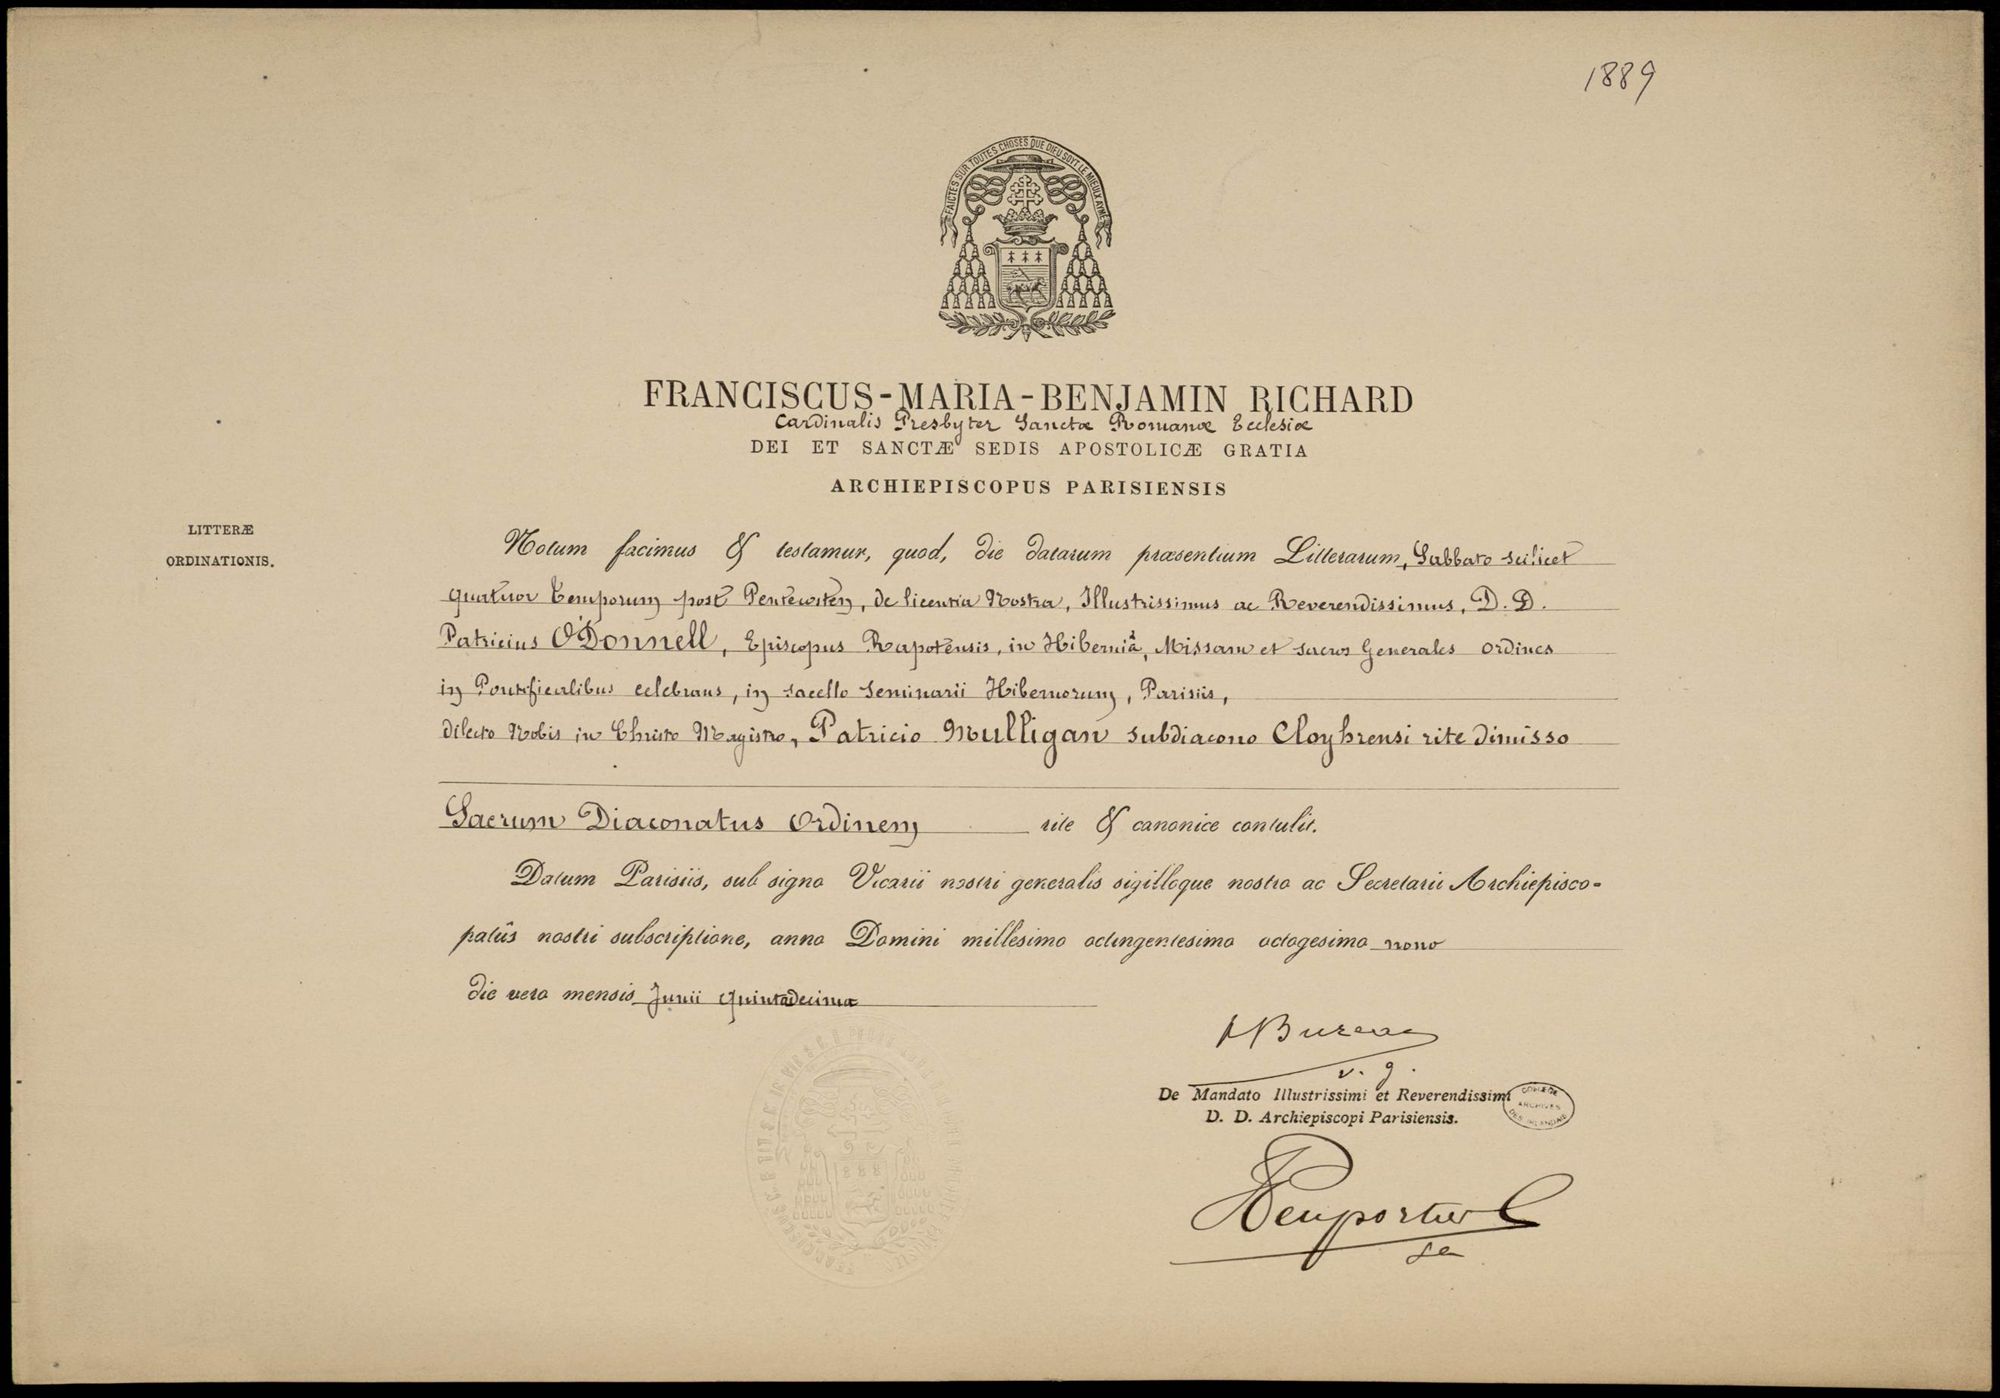 1889
FAICTES SUR TOUTES CHOSES QUE DIEU SOYT LE MIEULX AYMÉ
FRANCISCUS-MARIA-BENJAMIN RICHARD
Cardinalis Presbyter Sanctæ Romanæ Ecclesiæ
DEI ET SANCTÆ SEDIS APOSTOLICÆ GRATIA
ARCHIEPISCOPUS PARISIENSIS
LITTERÆ
ORDINATIONIS.
Notum facimus & testamur, quod, die datarum præsentium Litterarum, Sabbato scilicet
quatuor Temporum post Pentecosten, de licentia Nostra, Illustrissimus ac Reverendissimus, D. D.
Patricius O'Donnell, Episcopus Rapotensis, in Hiberniâ, Missam et sacros Generales ordines
in Pontificalibus celebrans, in sacello Seminarii Hibernorum, Parisiis,
dilecto Nobis in Christo Magistro, Patricio Mulligan subdiacono Cloghrensi rite dimisso
Sacrum Diaconatus Ordinem rite & canonice contulit.
Datum Parisiis, sub signo Vicarii nostri generalis sigilloque nostro ac Secretarii Archiepisco-
patûs nostri subscriptione, anno Domini millesimo octingentesimo octogesimo nono
die vero mensis Junii quintadecima
Bureau
v. g.
De Mandato Illustrissimi et Reverendissimi
D. D. Archiepiscopi Parisiensis.
ARCHIVES
DES IRLANDAIS